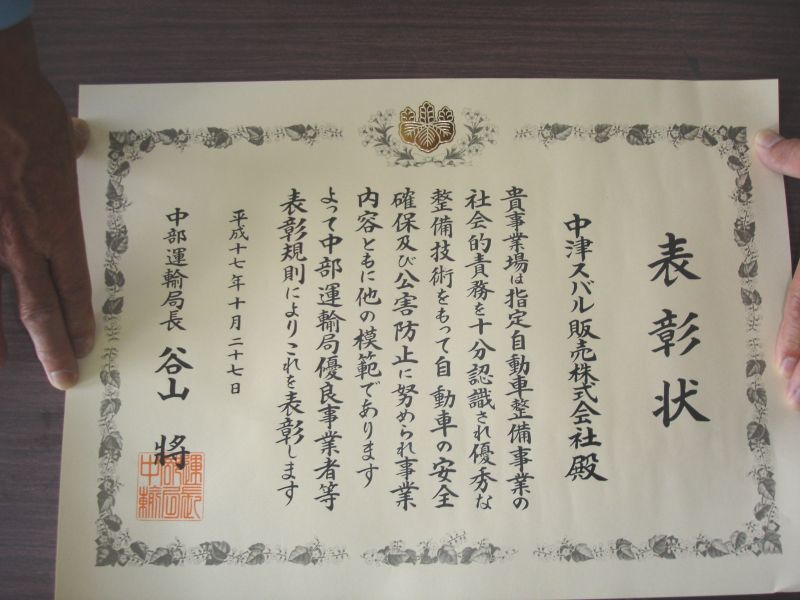 表彰状
中津スバル販売株式会社殿
貴事業場は指定自動車整備事業の
社会的責務を十分認識され優秀な
整備技術をもって自動車の安全
確保及び公害防止に努められ事業
内容ともに他の模範であります
よって中部運輸局優良事業者等
表彰規則によりこれを表彰します
平成十七年十月二十七日
中部運輸局長 谷山 將